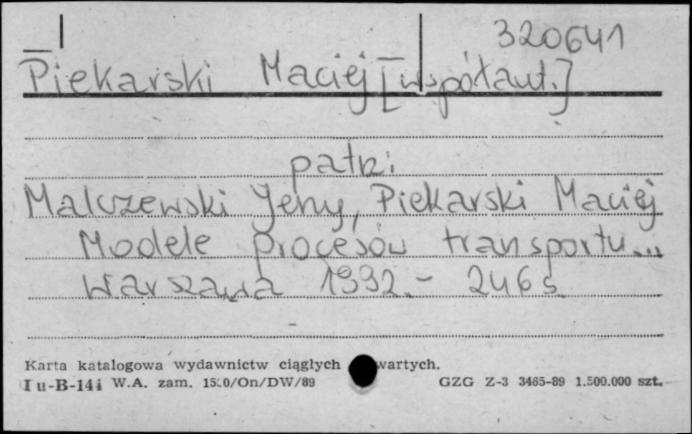 320641
Piekarski Maciej [współaut.]
patrz:
Malczewski Jerzy, Piekarski Maciej
Modele procesów transportu...
Warszawa 1992.- 246 s.
Karta katalogowa wydawnictw ciągłych wartych.
I u-B-14i W.A. zam. /On/DW/89 GZG Z-3 3465-89 1.500.000 szt.